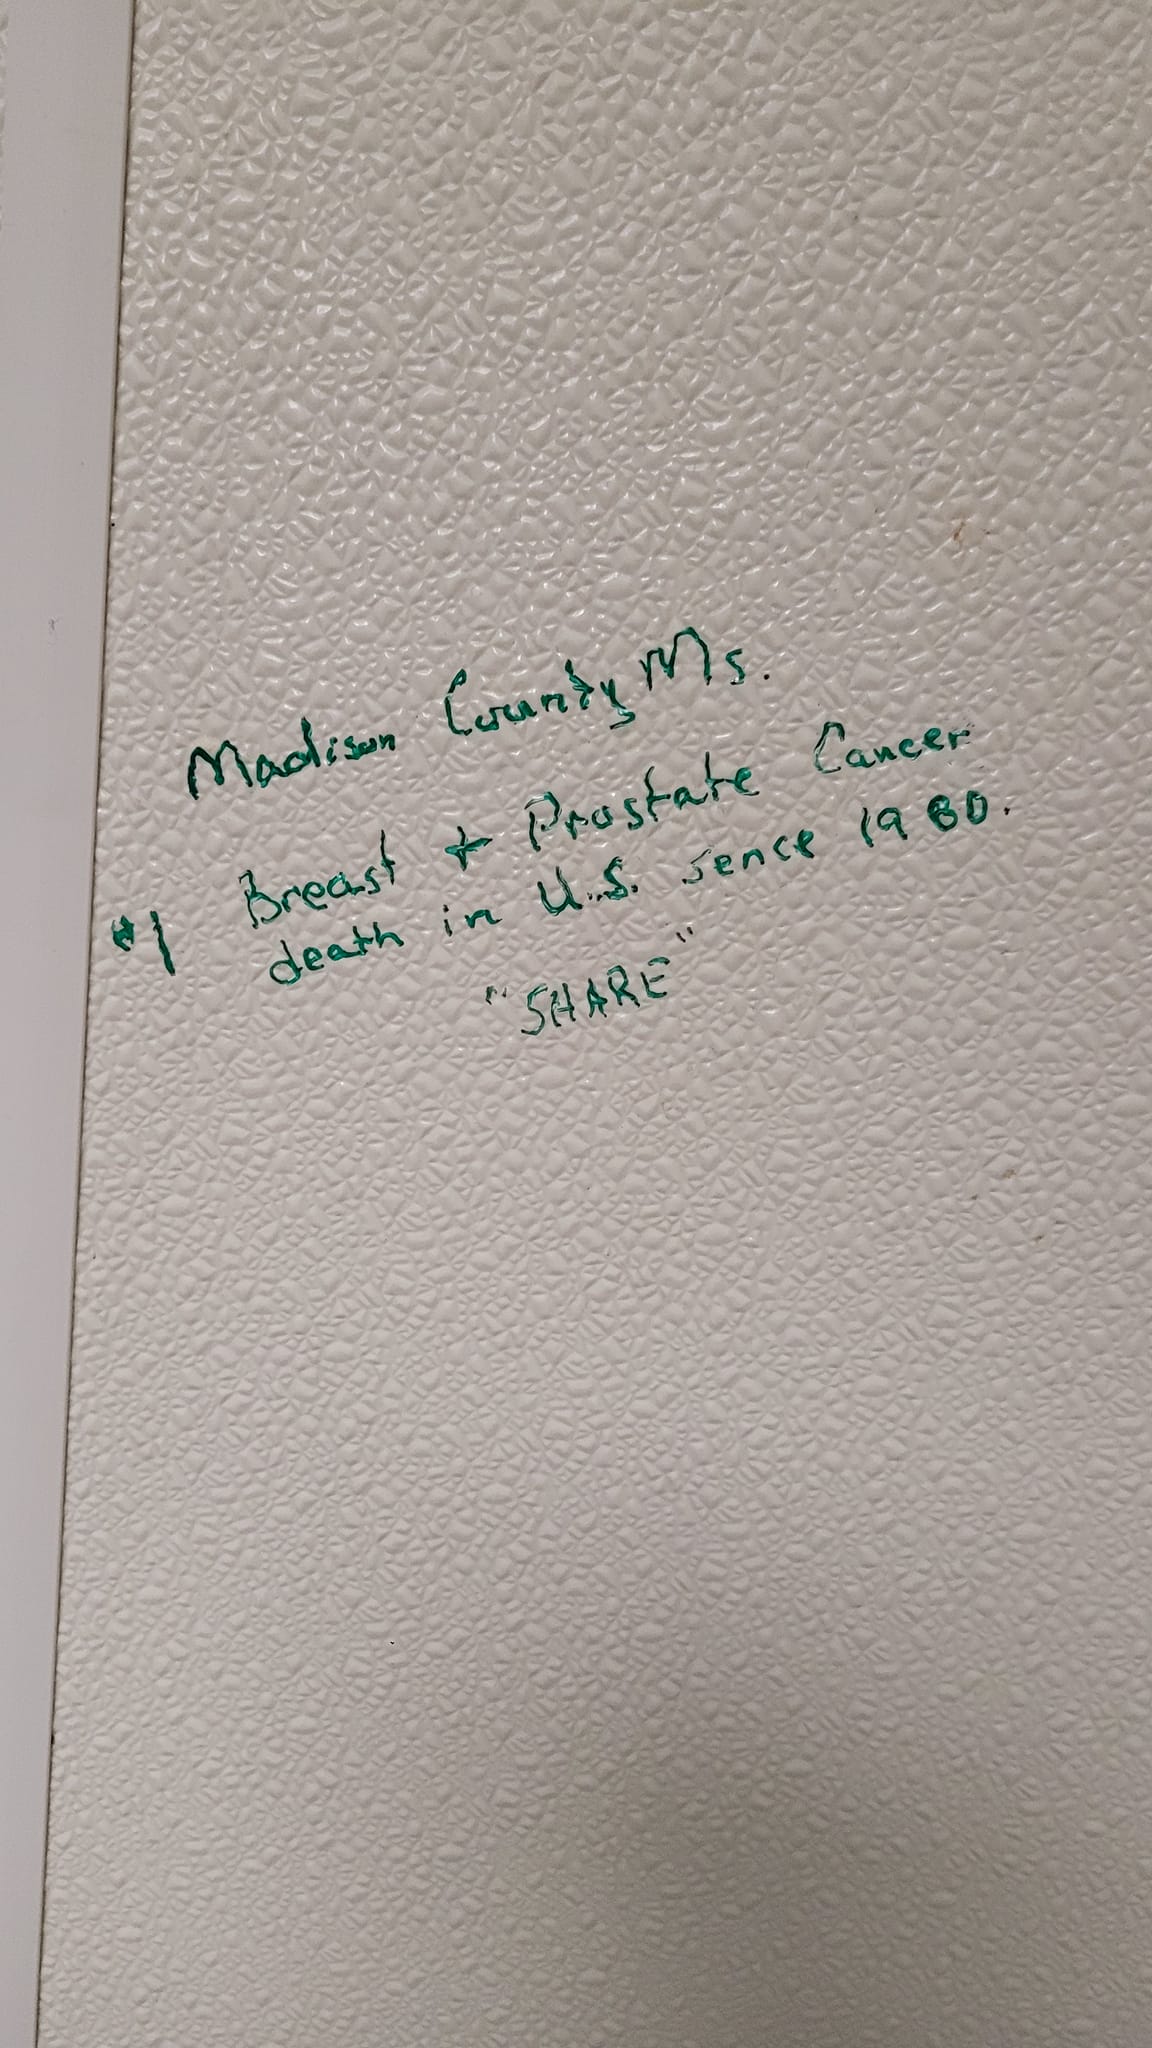 Madison County Ms.
#1 Breast + Prostate Cancer
death in U.S. sence 1980.
"SHARE"